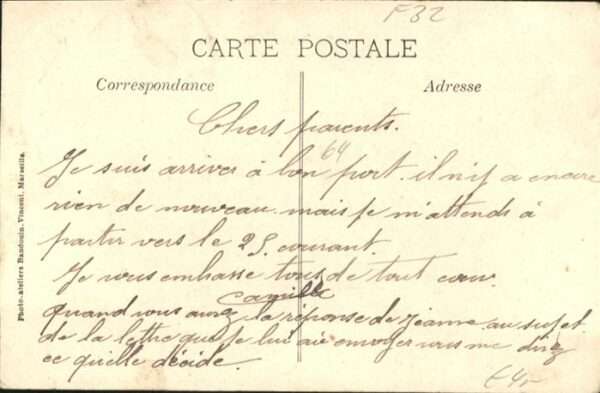 F32
CARTE POSTALE
Correspondance
Adresse
Chers parents.
64
Je suis arriver à bon port. il n'y a encore
rien de nouveau. mais je m'attends à
partir vers le 25 courant.
Je vous embrasse tous de tout cœur.
Camille
quand vous aurez la réponse de Jeanne au sujet
de la lettre que je lui ai envoyer vous me direz
ce qu'elle décide.
Photo-ateliers Baudouin. Vincent. Marseille.